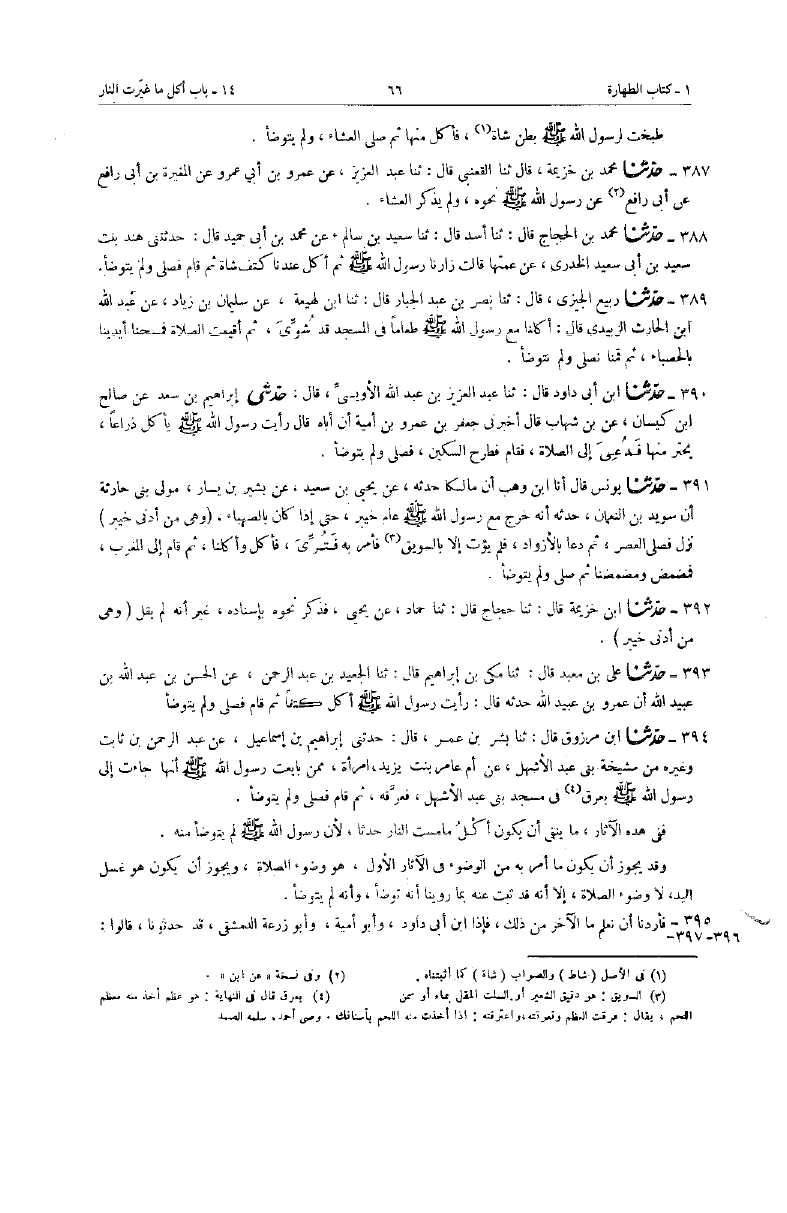 ١ - كتاب الطهارة ٦٦ ١٤ - باب أكل ما غيّرت النار
طبخت لرسول الله ﷺ بطن شاة(١) ، فأكل منها ثم صلى العشاء ، ولم يتوضأ .
٣٨٧ - حدثنا محمد بن خزيمة ، قال ثنا القعنبي قال : ثنا عبد العزيز ، عن عمرو بن أبي عمرو عن المغيرة بن أبى رافع
عن أبى رافع(٢) عن رسول الله ﷺ نحوه ، ولم يذكر العشاء .
٣٨٨ - حدثنا محمد بن الحجاج قال : ثنا أسد قال : ثنا سعيد بن سالم ، عن محمد بن أبى حميد قال : حدثتنى هند بنت
سعيد بن أبى سعيد الخدرى ، عن عمتها قالت زارنا رسول الله ﷺ ثم أكل عندنا كتف شاة ثم قام فصلى ولم يتوضأ.
٣٨٩ - حدثنا ربيع الجيزى ، قال : ثنا نصر بن عبد الجبار قال : ثنا ابن لهيعة ، عن سليمان بن زياد ، عن عبد الله
ابن الحارث الزبيدي قال : أكلنا مع رسول الله ﷺ طعاماً فى المسجد قد شُوِّىَ ، ثم أقيمت الصلاة فمسحنا أيدينا
بالحصباء ، ثم قمنا نصلى ولم نتوضأ .
٣٩٠ - حدثنا ابن أبى داود قال : ثنا عبد العزيز بن عبد الله الأويسىّ ، قال : حدثنى إبراهيم بن سعد عن صالح
ابن كيسان ، عن بن شهاب قال أخبرنى جعفر بن عمرو بن أمية أن أباه قال رأيت رسول الله ﷺ يأكل ذراعاً ،
يحتز منها فَدُعِىَ إلى الصلاة ، فقام فطرح السكين ، فصلى ولم يتوضأ .
٣٩١ - حدثنا يونس قال أنا ابن وهب أن مالكا حدثه ، عن يحيى بن سعيد ، عن بشير بن يسار ، مولى بنى حارثة
أن سويد بن النعمان ، حدثه أنه خرج مع رسول الله ﷺ عام خيبر ، حتى إذا كان بالصهباء . (وهى من أدنى خيبر )
نزل فصلى العصر ، ثم دعا بالأزواد ، فلم يؤت إلا بالسويق(٣) فأمر به فَثُرِّىَ ، فأكل وأكلنا ، ثم قام إلى المغرب ،
فمضمض ومضمضنا ثم صلى ولم يتوضأ .
٣٩٢ - حدثنا ابن خزيمة قال : ثنا حجاج قال : ثنا حماد ، عن يحيى ، فذكر نحوه بإسناده ، غير أنه لم يقل ( وهى
من أدنى خيبر ) .
٣٩٣ - حدثنا على بن معبد قال : ثنا مكى بن إبراهيم قال : ثنا الجعيد بن عبد الرحمن ، عن الحسن بن عبد الله بن
عبيد الله أن عمرو بن عبيد الله حدثه قال : رأيت رسول الله ﷺ أكل كتفاً ثم قام فصلى ولم يتوضأ
٣٩٤ - حدثنا ابن مرزوق قال : ثنا بشر بن عمر ، قال : حدثنى إبراهيم بن إسماعيل ، عن عبد الرحمن بن ثابت
وغيره من مشيخة بنى عبد الأشهل ، عن أم عامر بنت يزيد، امرأة ، ممن بايعت رسول الله ﷺ أنها جاءت إلى
رسول الله ﷺ بعرق(٤) فى مسجد بنى عبد الأشهل ، فعرَّقه ، ثم قام فصلى ولم يتوضأ .
ففى هذه الآثار ، ما ينفى أن يكون أكلُ مامست النار حدثا ، لأن رسول الله ﷺ لم يتوضأ منه .
وقد يجوز أن يكون ما أمر به من الوضوء فى الآثار الأول ، هو وضوء الصلاة ، ويجوز أن يكون هو غسل
اليد، لا وضوء الصلاة ، إلا أنه قد ثبت عنه بما روينا أنه توضأ ، وأنه لم يتوضأ .
٣٩٥ - فأردنا أن نعلم ما الآخر من ذلك ، فإذا ابن أبى داود ، وأبو أمية ، وأبو زرعة الدمشقى ، قد حدثونا ، قالوا :
٣٩٦-٣٩٧-
(١) فى الأصل ( شاط ) والصواب ( شاة ) كما أثبتناه . (٢) وفى نسخة « عن ابن » .
(٣) السويق : هو دقيق الشعير أو السلت المقل بماء أو سمن (٤) بعرق قال فى النهاية : هو عظم أخذ منه معظم
اللحم ، يقال : عرقت العظم وتعرقته،واعترقته : اذا أخذت منه اللحم بأسنانك . وصى أحمد، سلمه الصمد